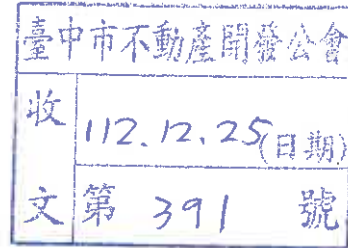 臺中市不動產開發公會
收文
112.12.25(日期)
第 391 號